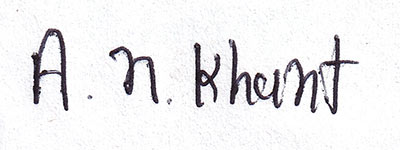 A. n. Khant